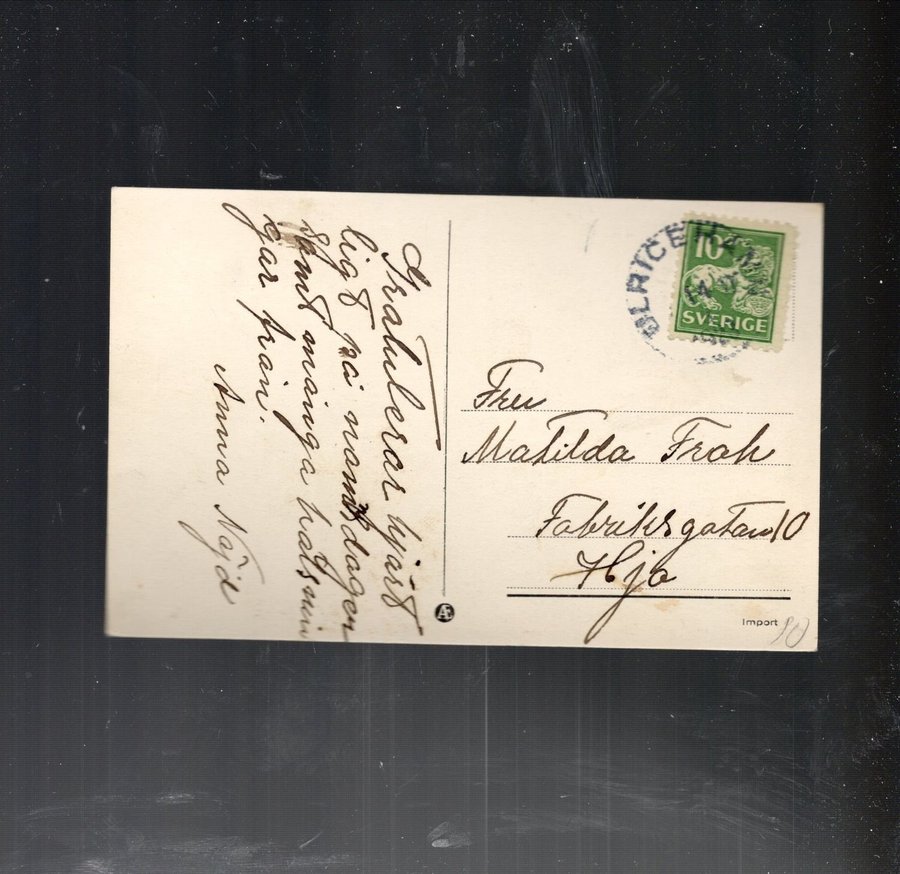 Gratulerar hjärt
ligt på namsdagen
samt många hälsnin
gar från.
Anna Nöjd
ULRICEHAMN
10
SVERIGE
Fru
Matilda Frah
Fabriksgatan 10
Hjo
Æ
Import
10